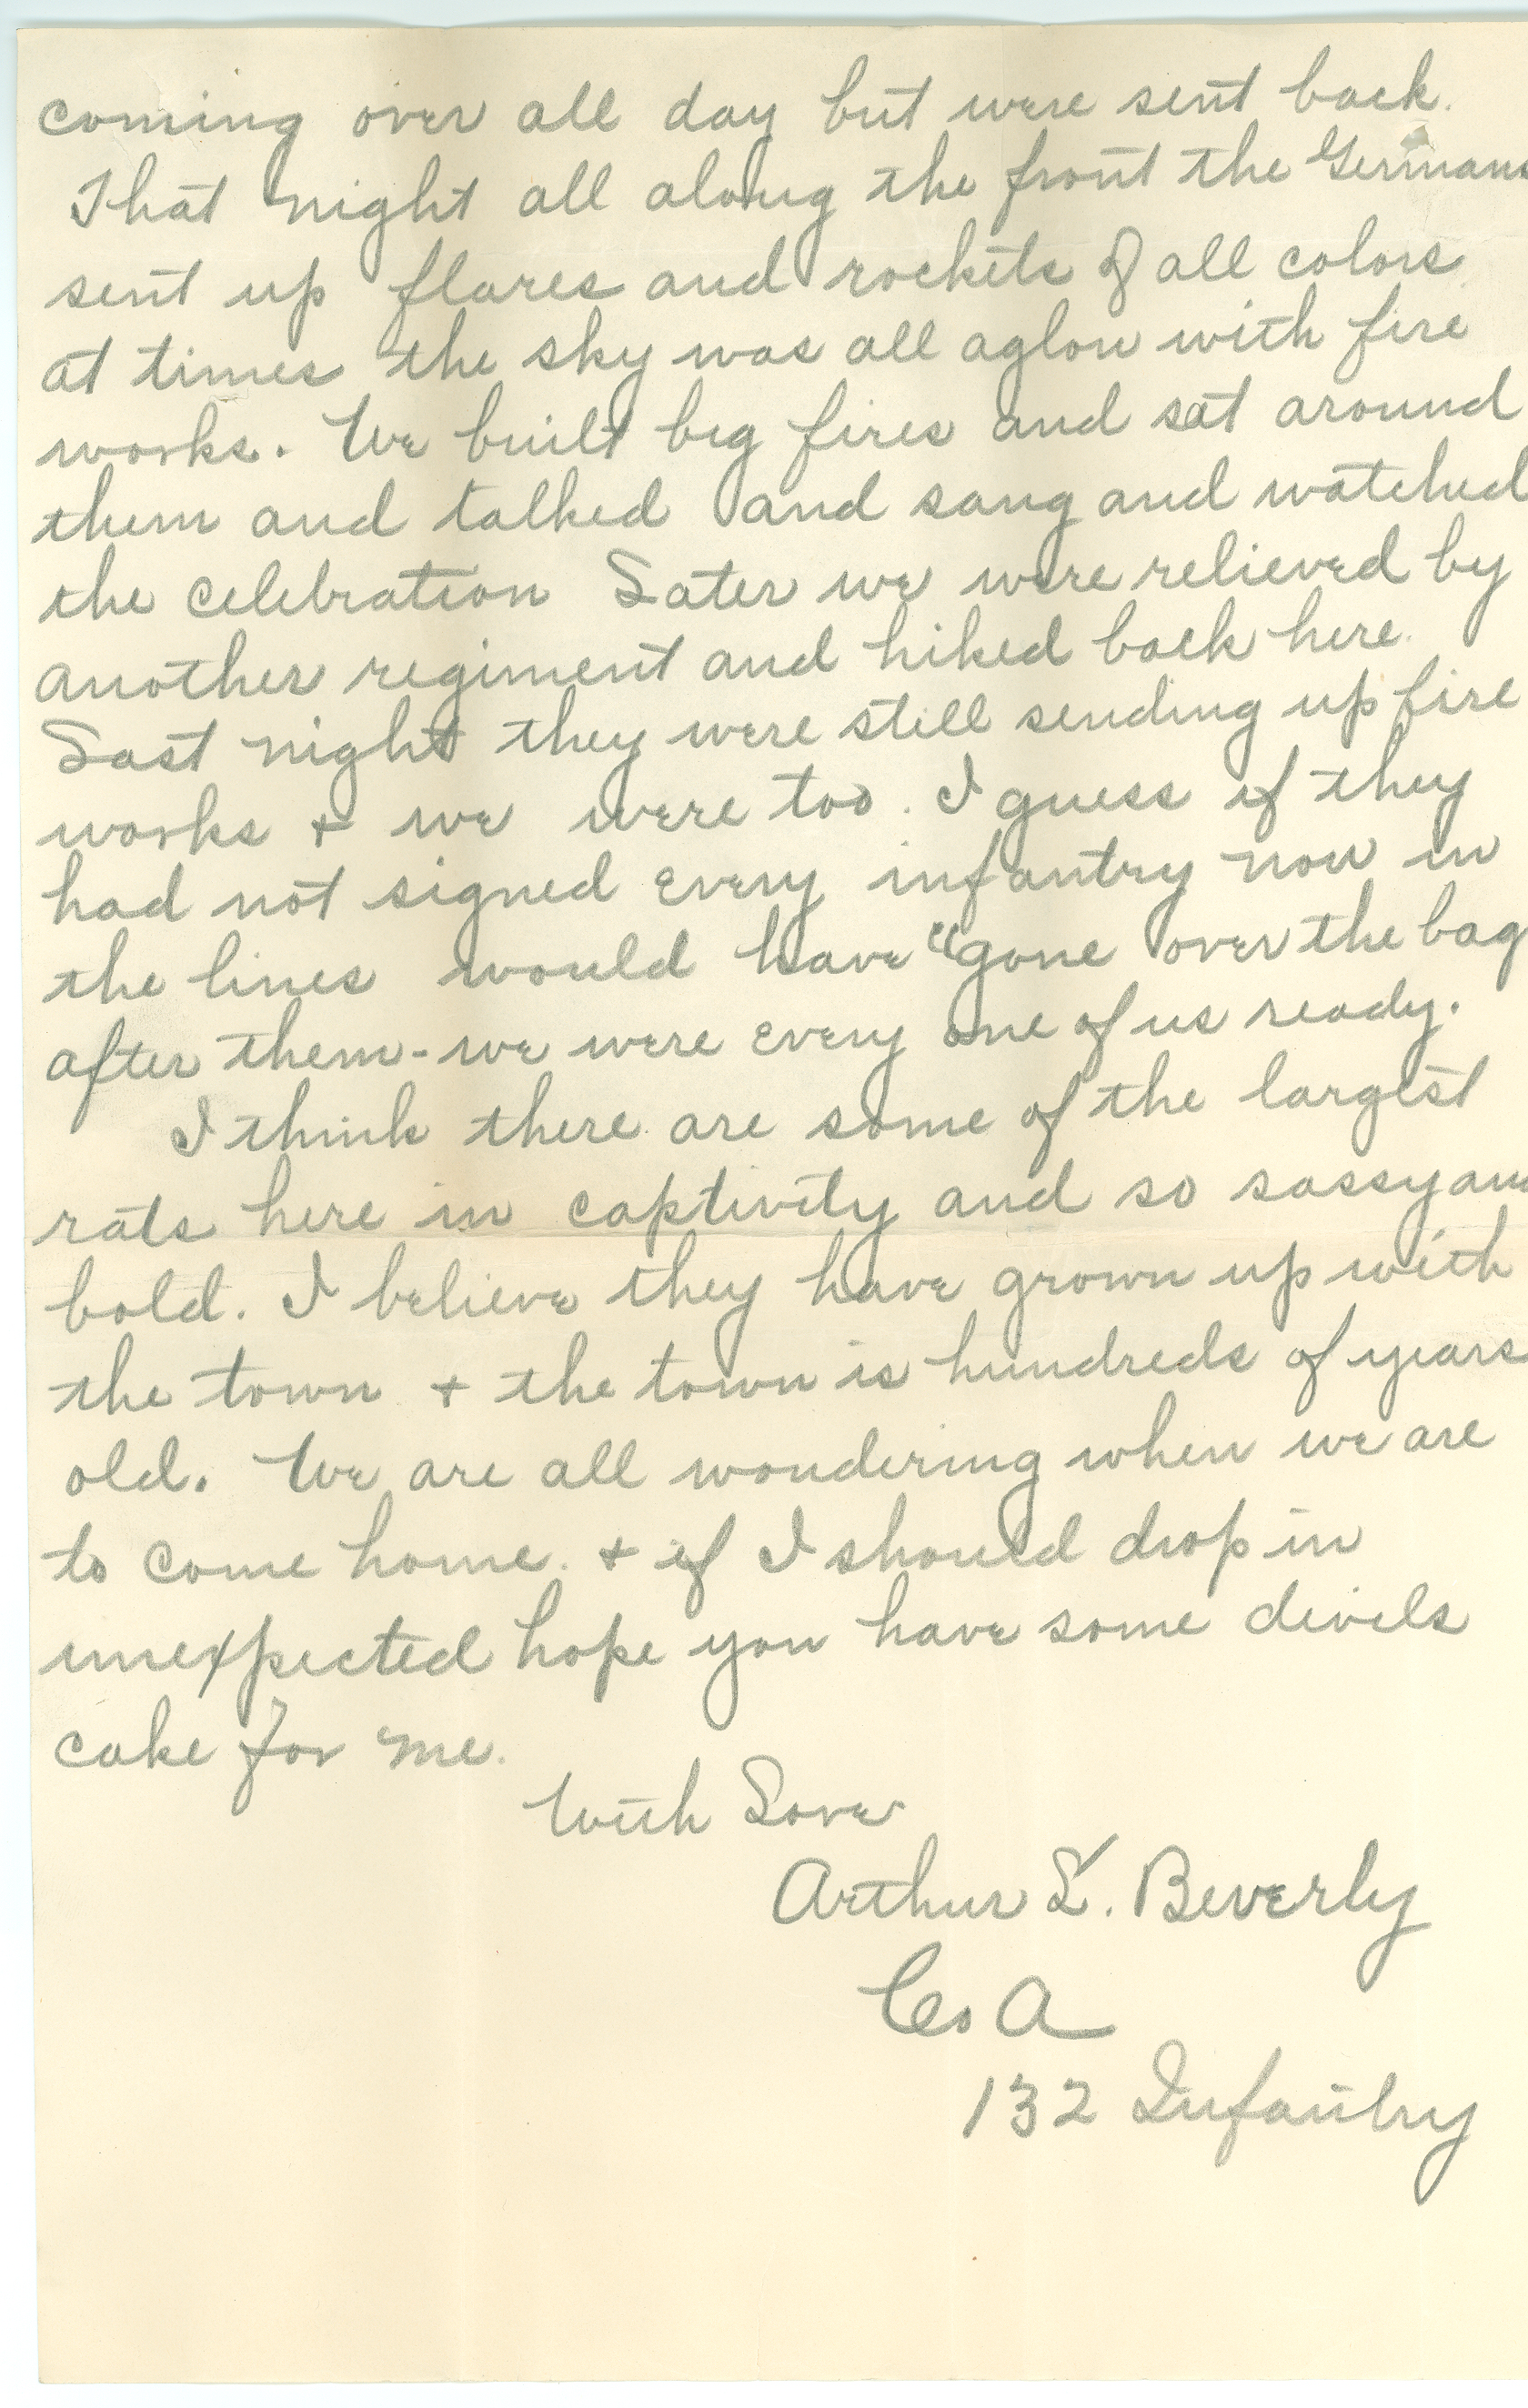 coming over all day but were sent back.
That night all along the front the Germans
sent up flares and rockets of all colors
at times the sky was all aglow with fire
works. We built big fires and sat around
them and talked and sang and watched
the celebration Later we were relieved by
another regiment and hiked back here.
Last night they were still sending up fire
works + we were too. I guess if they
had not signed every infantry now in
the lines would have "gone over the bag
after them - we were every one of us ready.
I think there are some of the largest
rats here in captivity and so sassy and
bold. I believe they have grown up with
the town + the town is hundreds of years
old. We are all wondering when we are
to come home. + if I should drop in
unexpected hope you have some divels
cake for me.
With Love
Arthur L. Beverly
Co A
132 Infantry